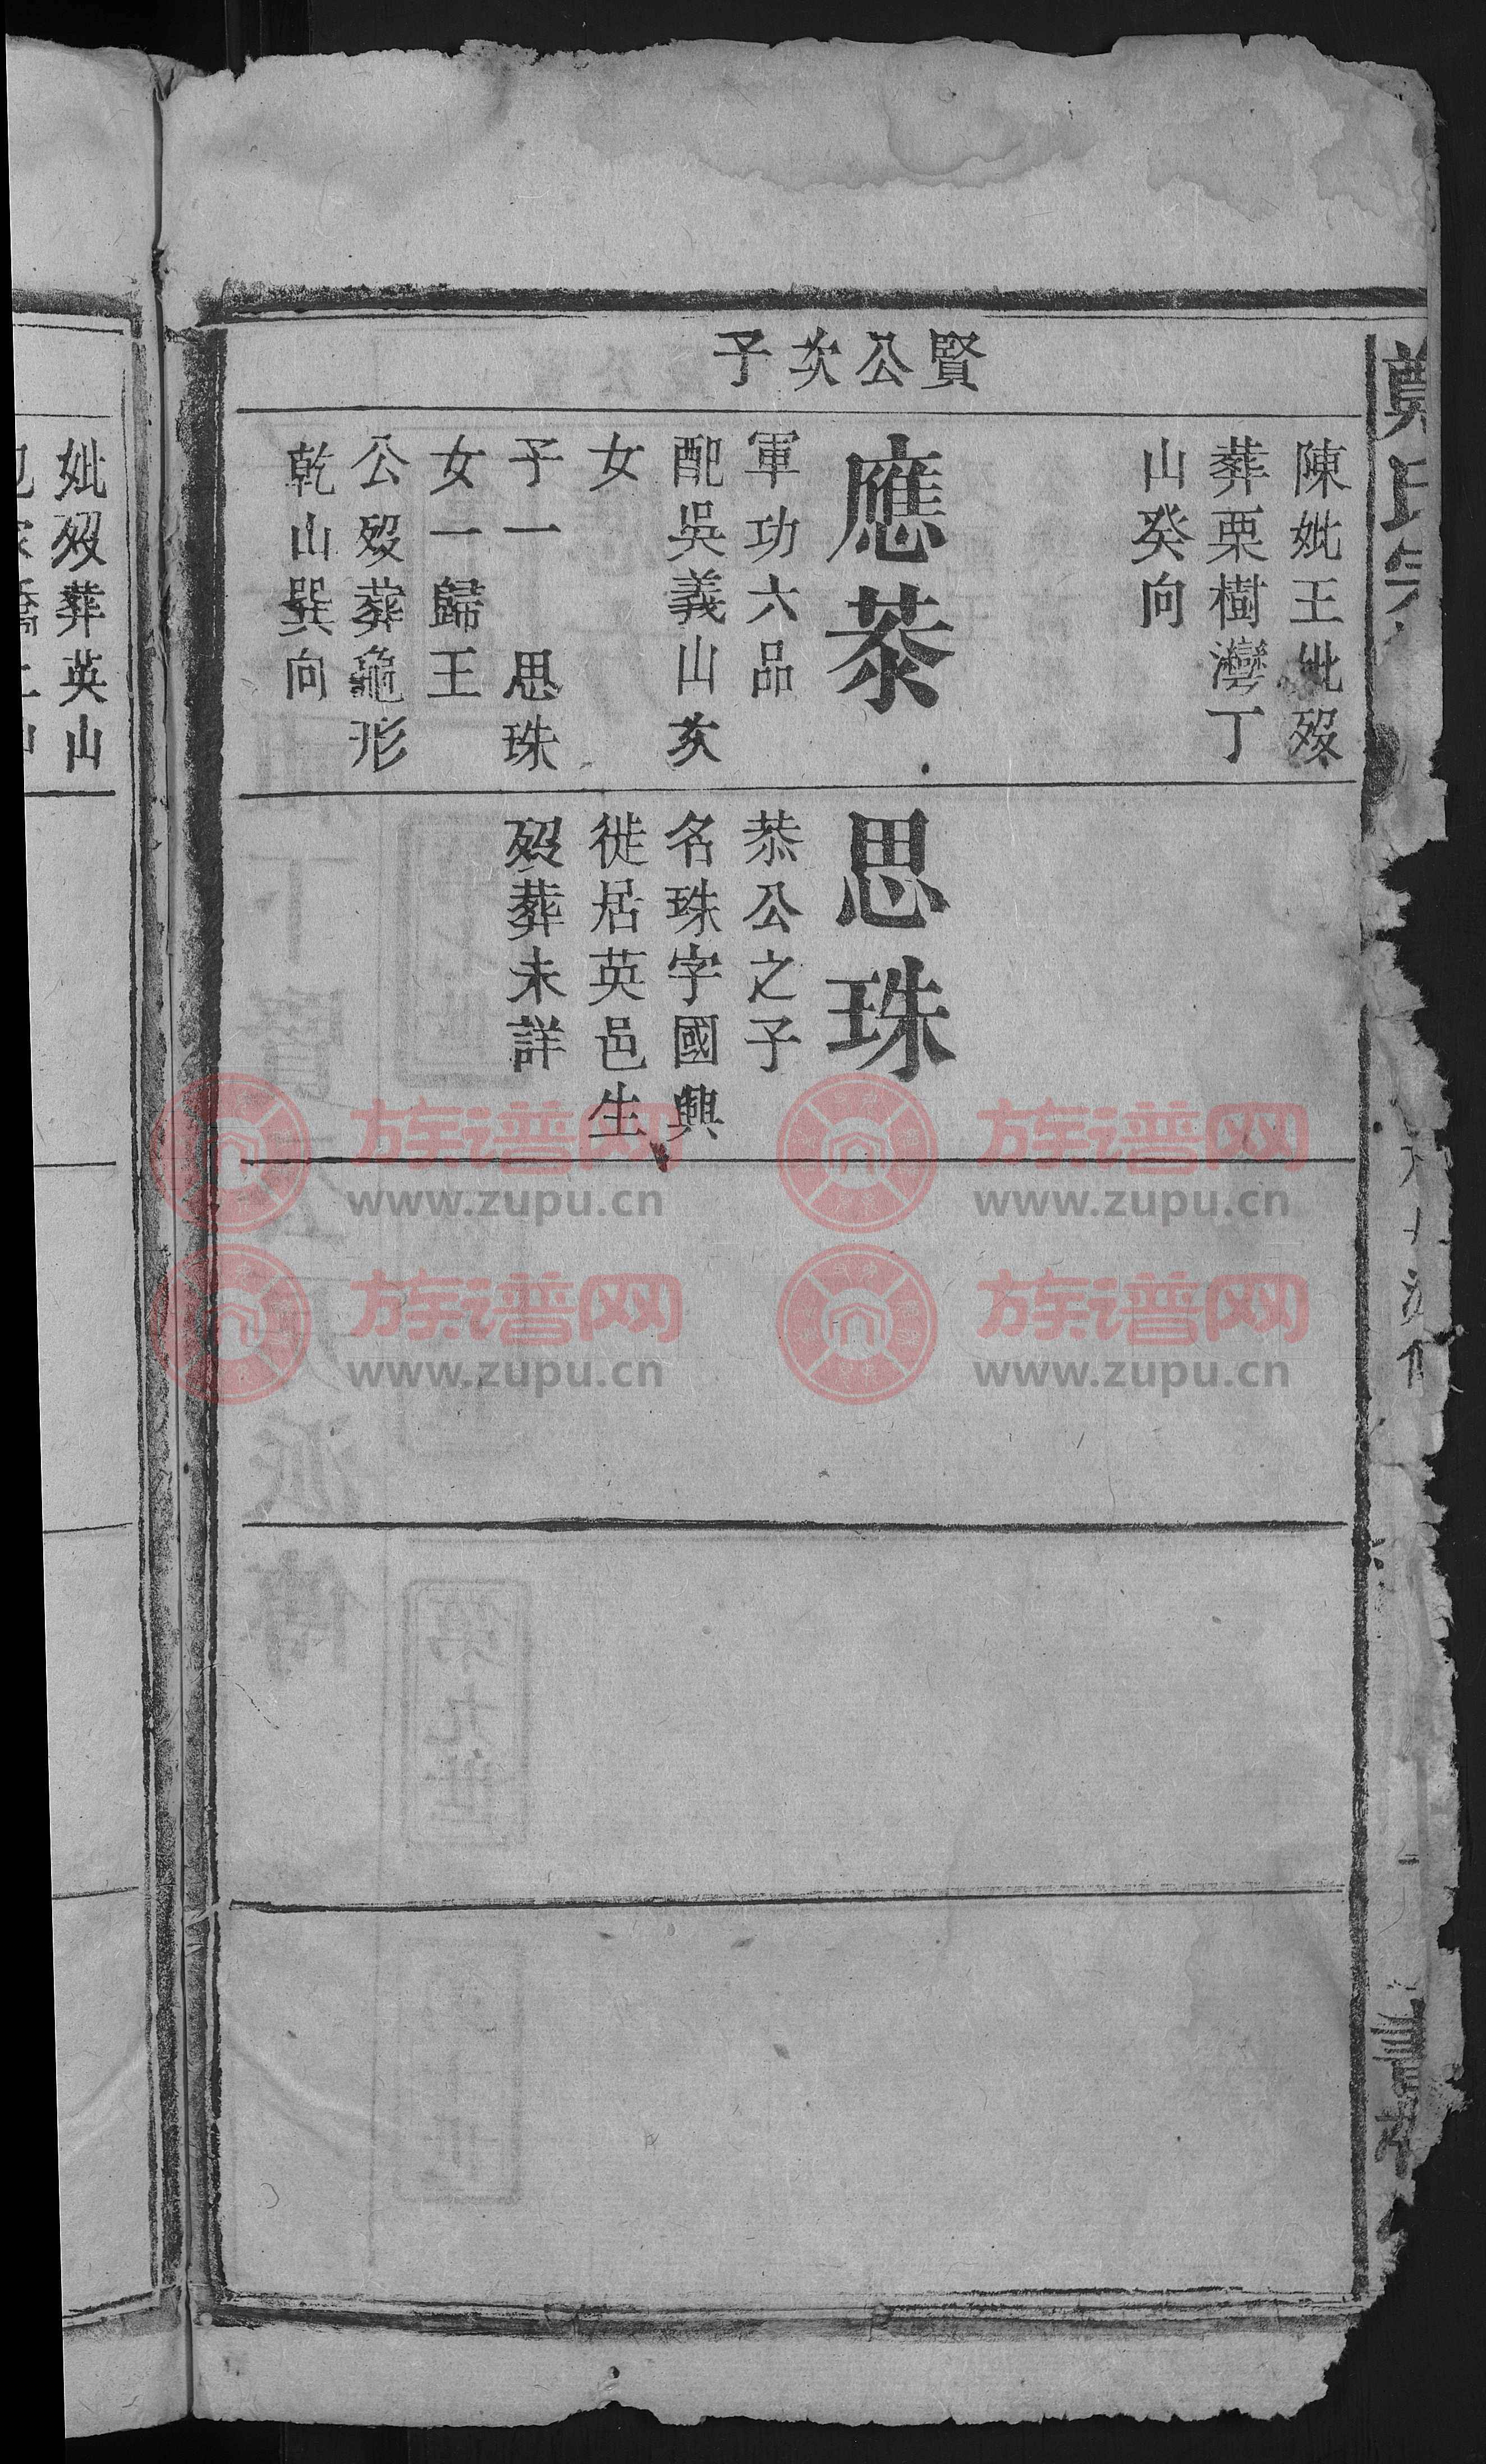 鄭氏宗
賢公次子
陳妣王妣歿
葬栗樹灣丁
山癸向
應恭
軍功六品
配吳義山亥
女
子一 思珠
女一歸王
公歿葬龜形
乾山巽向
思珠
恭公之子
名珠字國興
徙居英邑生
歿葬未詳
妣歿葬英山
族谱网
www.zupu.cn
族谱网
www.zupu.cn
族谱网
www.zupu.cn
族谱网
www.zupu.cn